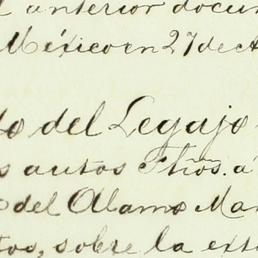 l anterior docum
México en 27 de A
do del Legajo
s autos fhos. á
del Alamo Mar
tos, sobre la ext